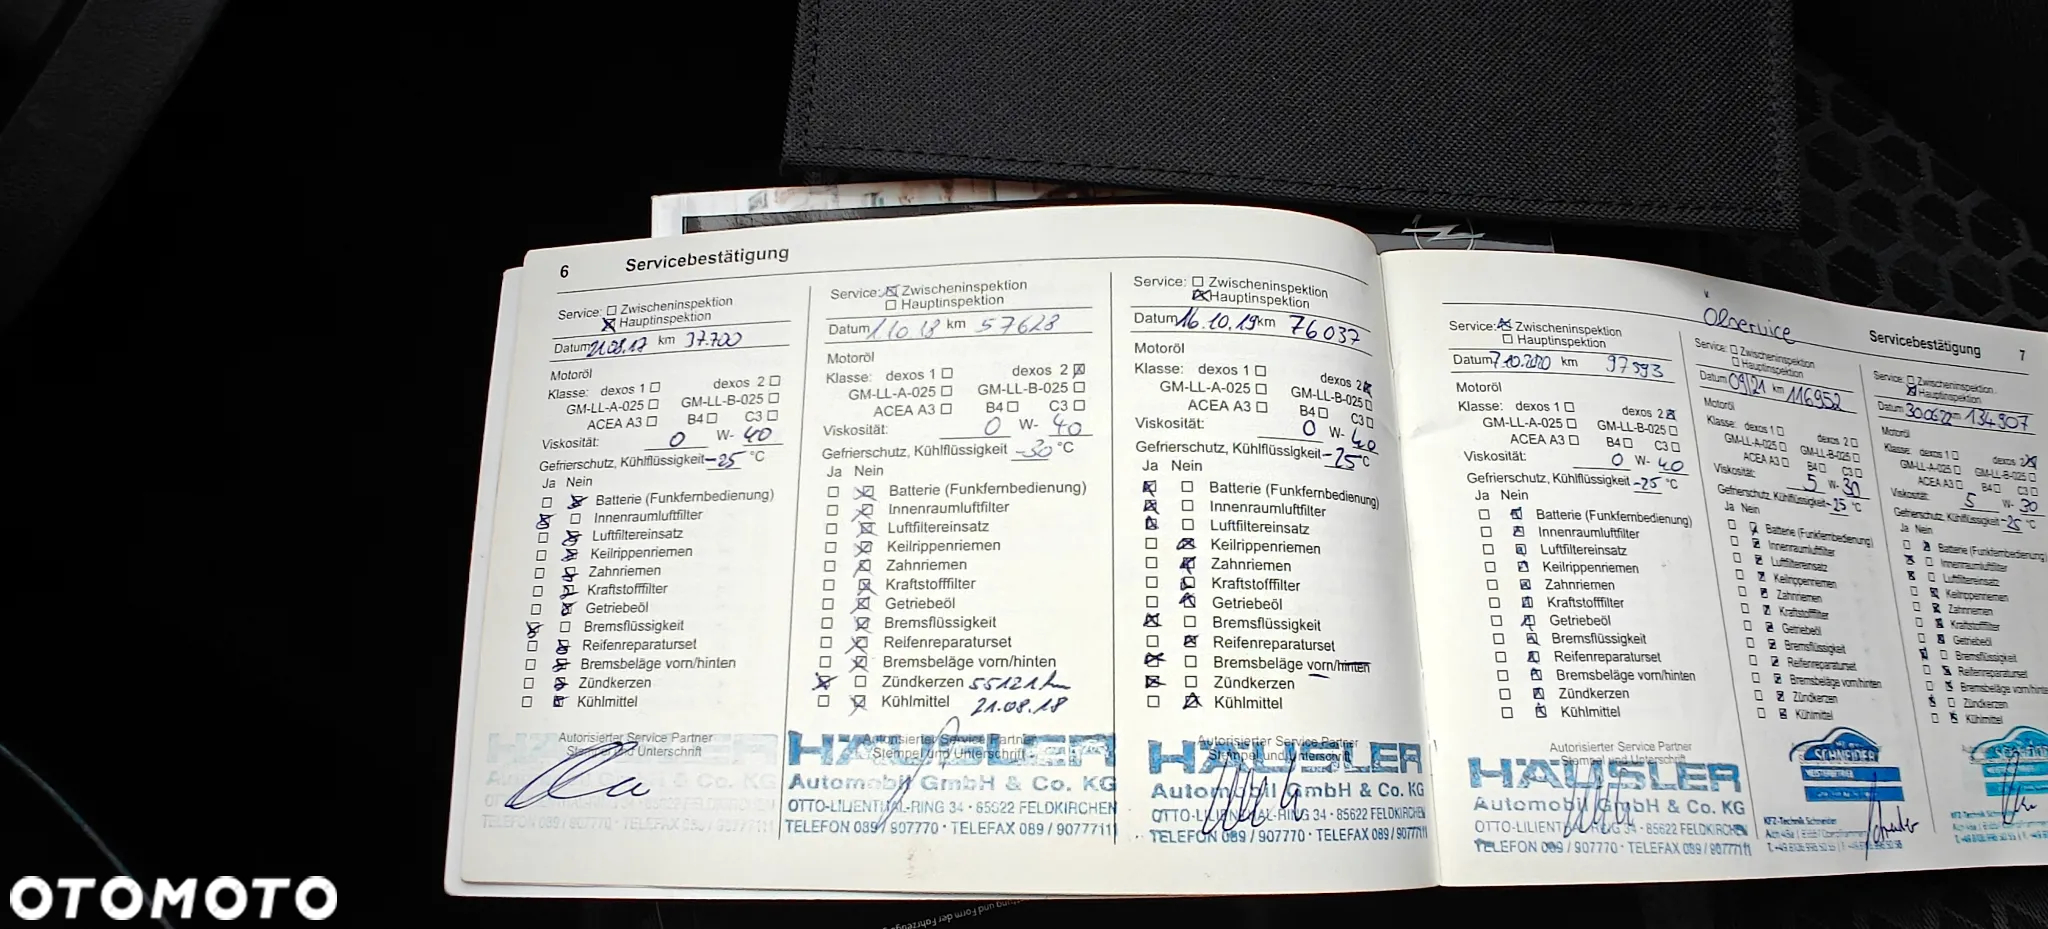 6 Servicebestätigung
Service: Zwischeninspektion
Hauptinspektion
Datum 21.08.17 km 37.700
Motoröl
Klasse: dexos 1 dexos 2
GM-LL-A-025 GM-LL-B-025
ACEA A3 B4 C3
Viskosität: 0 W- 40
Gefrierschutz, Kühlflüssigkeit -25 °C
Ja Nein
Batterie (Funkfernbedienung)
Innenraumluftfilter
Luftfiltereinsatz
Keilrippenriemen
Zahnriemen
Kraftstofffilter
Getriebeöl
Bremsflüssigkeit
Reifenreparaturset
Bremsbeläge vorn/hinten
Zündkerzen
Kühlmittel
Autorisierter Service Partner
Stempel und Unterschrift
Service: Zwischeninspektion
Hauptinspektion
Datum 1.10.18 km 57628
Motoröl
Klasse: dexos 1 dexos 2
GM-LL-A-025 GM-LL-B-025
ACEA A3 B4 C3
Viskosität: 0 W- 40
Gefrierschutz, Kühlflüssigkeit -30 °C
Ja Nein
Batterie (Funkfernbedienung)
Innenraumluftfilter
Luftfiltereinsatz
Keilrippenriemen
Zahnriemen
Kraftstofffilter
Getriebeöl
Bremsflüssigkeit
Reifenreparaturset
Bremsbeläge vorn/hinten
Zündkerzen 55121 km
Kühlmittel 21.08.18
Autorisierter Service Partner
Stempel und Unterschrift
HÄUSLER
Automobil GmbH & Co. KG
OTTO-LILIENTHAL-RING 34 · 85622 FELDKIRCHEN
TELEFON 089 / 907770 · TELEFAX 089 / 90777111
Service: Zwischeninspektion
Hauptinspektion
Datum 16.10.19 km 76037
Motoröl
Klasse: dexos 1 dexos 2
GM-LL-A-025 GM-LL-B-025
ACEA A3 B4 C3
Viskosität: 0 W- 40
Gefrierschutz, Kühlflüssigkeit -25 °C
Ja Nein
Batterie (Funkfernbedienung)
Innenraumluftfilter
Luftfiltereinsatz
Keilrippenriemen
Zahnriemen
Kraftstofffilter
Getriebeöl
Bremsflüssigkeit
Reifenreparaturset
Bremsbeläge vorn/hinten
Zündkerzen
Kühlmittel
Autorisierter Service Partner
Stempel und Unterschrift
HÄUSLER
Automobil GmbH & Co. KG
OTTO-LILIENTHAL-RING 34 · 85622 FELDKIRCHEN
TELEFON 089 / 907770 · TELEFAX 089 / 90777111
Servicebestätigung 7
Service: Zwischeninspektion
Hauptinspektion
Datum 7.10.2020 km 97393
Motoröl
Klasse: dexos 1 dexos 2
GM-LL-A-025 GM-LL-B-025
ACEA A3 B4 C3
Viskosität: 0 W- 40
Gefrierschutz, Kühlflüssigkeit -25 °C
Ja Nein
Batterie (Funkfernbedienung)
Innenraumluftfilter
Luftfiltereinsatz
Keilrippenriemen
Zahnriemen
Kraftstofffilter
Getriebeöl
Bremsflüssigkeit
Reifenreparaturset
Bremsbeläge vorn/hinten
Zündkerzen
Kühlmittel
Autorisierter Service Partner
Stempel und Unterschrift
HÄUSLER
Automobil GmbH & Co. KG
OTTO-LILIENTHAL-RING 34 · 85622 FELDKIRCHEN
TELEFON 089 / 907770 · TELEFAX 089 / 90777111
Ölservice
Service: Zwischeninspektion
Hauptinspektion
Datum 09/21 km 116952
Motoröl
Klasse: dexos 1 dexos 2
GM-LL-A-025 GM-LL-B-025
ACEA A3 B4 C3
Viskosität: 5 W- 30
Gefrierschutz, Kühlflüssigkeit -25 °C
Ja Nein
Batterie (Funkfernbedienung)
Innenraumluftfilter
Luftfiltereinsatz
Keilrippenriemen
Zahnriemen
Kraftstofffilter
Getriebeöl
Bremsflüssigkeit
Reifenreparaturset
Bremsbeläge vorn/hinten
Zündkerzen
Kühlmittel
SCHNEIDER
MEISTERBETRIEB
KFZ-Technik Schneider
Service: Zwischeninspektion
Hauptinspektion
Datum 30.06.22 km 134907
Motoröl
Klasse: dexos 1 dexos 2
GM-LL-A-025 GM-LL-B-025
ACEA A3 B4 C3
Viskosität: 5 W- 30
Gefrierschutz, Kühlflüssigkeit -25 °C
Ja Nein
Batterie (Funkfernbedienung)
Innenraumluftfilter
Luftfiltereinsatz
Keilrippenriemen
Zahnriemen
Kraftstofffilter
Getriebeöl
Bremsflüssigkeit
Reifenreparaturset
Bremsbeläge vorn/hinten
Zündkerzen
Kühlmittel
OTOMOTO